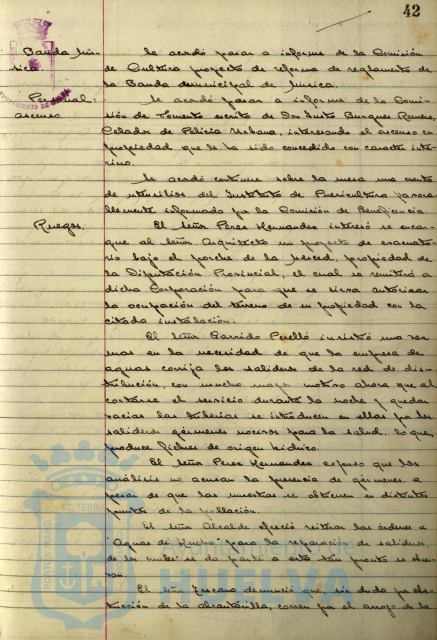 42
Banda Mú-
sica
Se acordó pasar a informe de la Comisión
de Cultura proyecto de reforma de reglamento de
la Banda Municipal de Música.
Personal:
ascenso
Se acordó pasar a informe de la Comi-
sión de Fomento escrito de Don Justo Burgues Romero,
Celador de Policia Urbana, interesando el ascenso en
propiedad que le ha sido concedido con caracter inte-
rino.
Se acordó continue sobre la mesa una cuenta
de utensilios del Instituto de Puericultura favora-
blemente informado por la Comisión de Beneficencia.
Ruegos.
El Señor Perez Hernandez interesó se encar-
gue al Señor Arquitecto un proyecto de evacuato-
rio bajo el porche de la Merced, propiedad de
la Diputación Provincial, el cual se remitirá a
dicha Corporación para que se sirva autorizar
la ocupación del terreno de su propiedad con la
citada instalación.
El Señor Garrido Perelló insistió una vez
mas en la necesidad de que la empresa de
aguas corrija los salideros de la red de dis-
tribución, con mucho mayor motivo ahora que al
cortarse el servicio durante la noche y quedar
vacias las tuberias se introducen en ellas por los
salideros gérmenes nocivos para la salud, lo que
produce fiebres de origen hidrico.
El Señor Perez Hernandez expuso que los
análisis no acusan la presencia de gérmenes, a
pesar de que las muestras se obtienen en distintos
puntos de la población.
El Señor Alcalde ofreció reitirar las órdenes a
"Aguas de Huelva" para la reparación de salideros
de los cuales se da parte a esta tan pronto se
El Señor Toscano denunció que, sin duda por obs-
trucción de la alcantarilla, corren por el arroyo de la
Ayuntamiento de
HUELVA